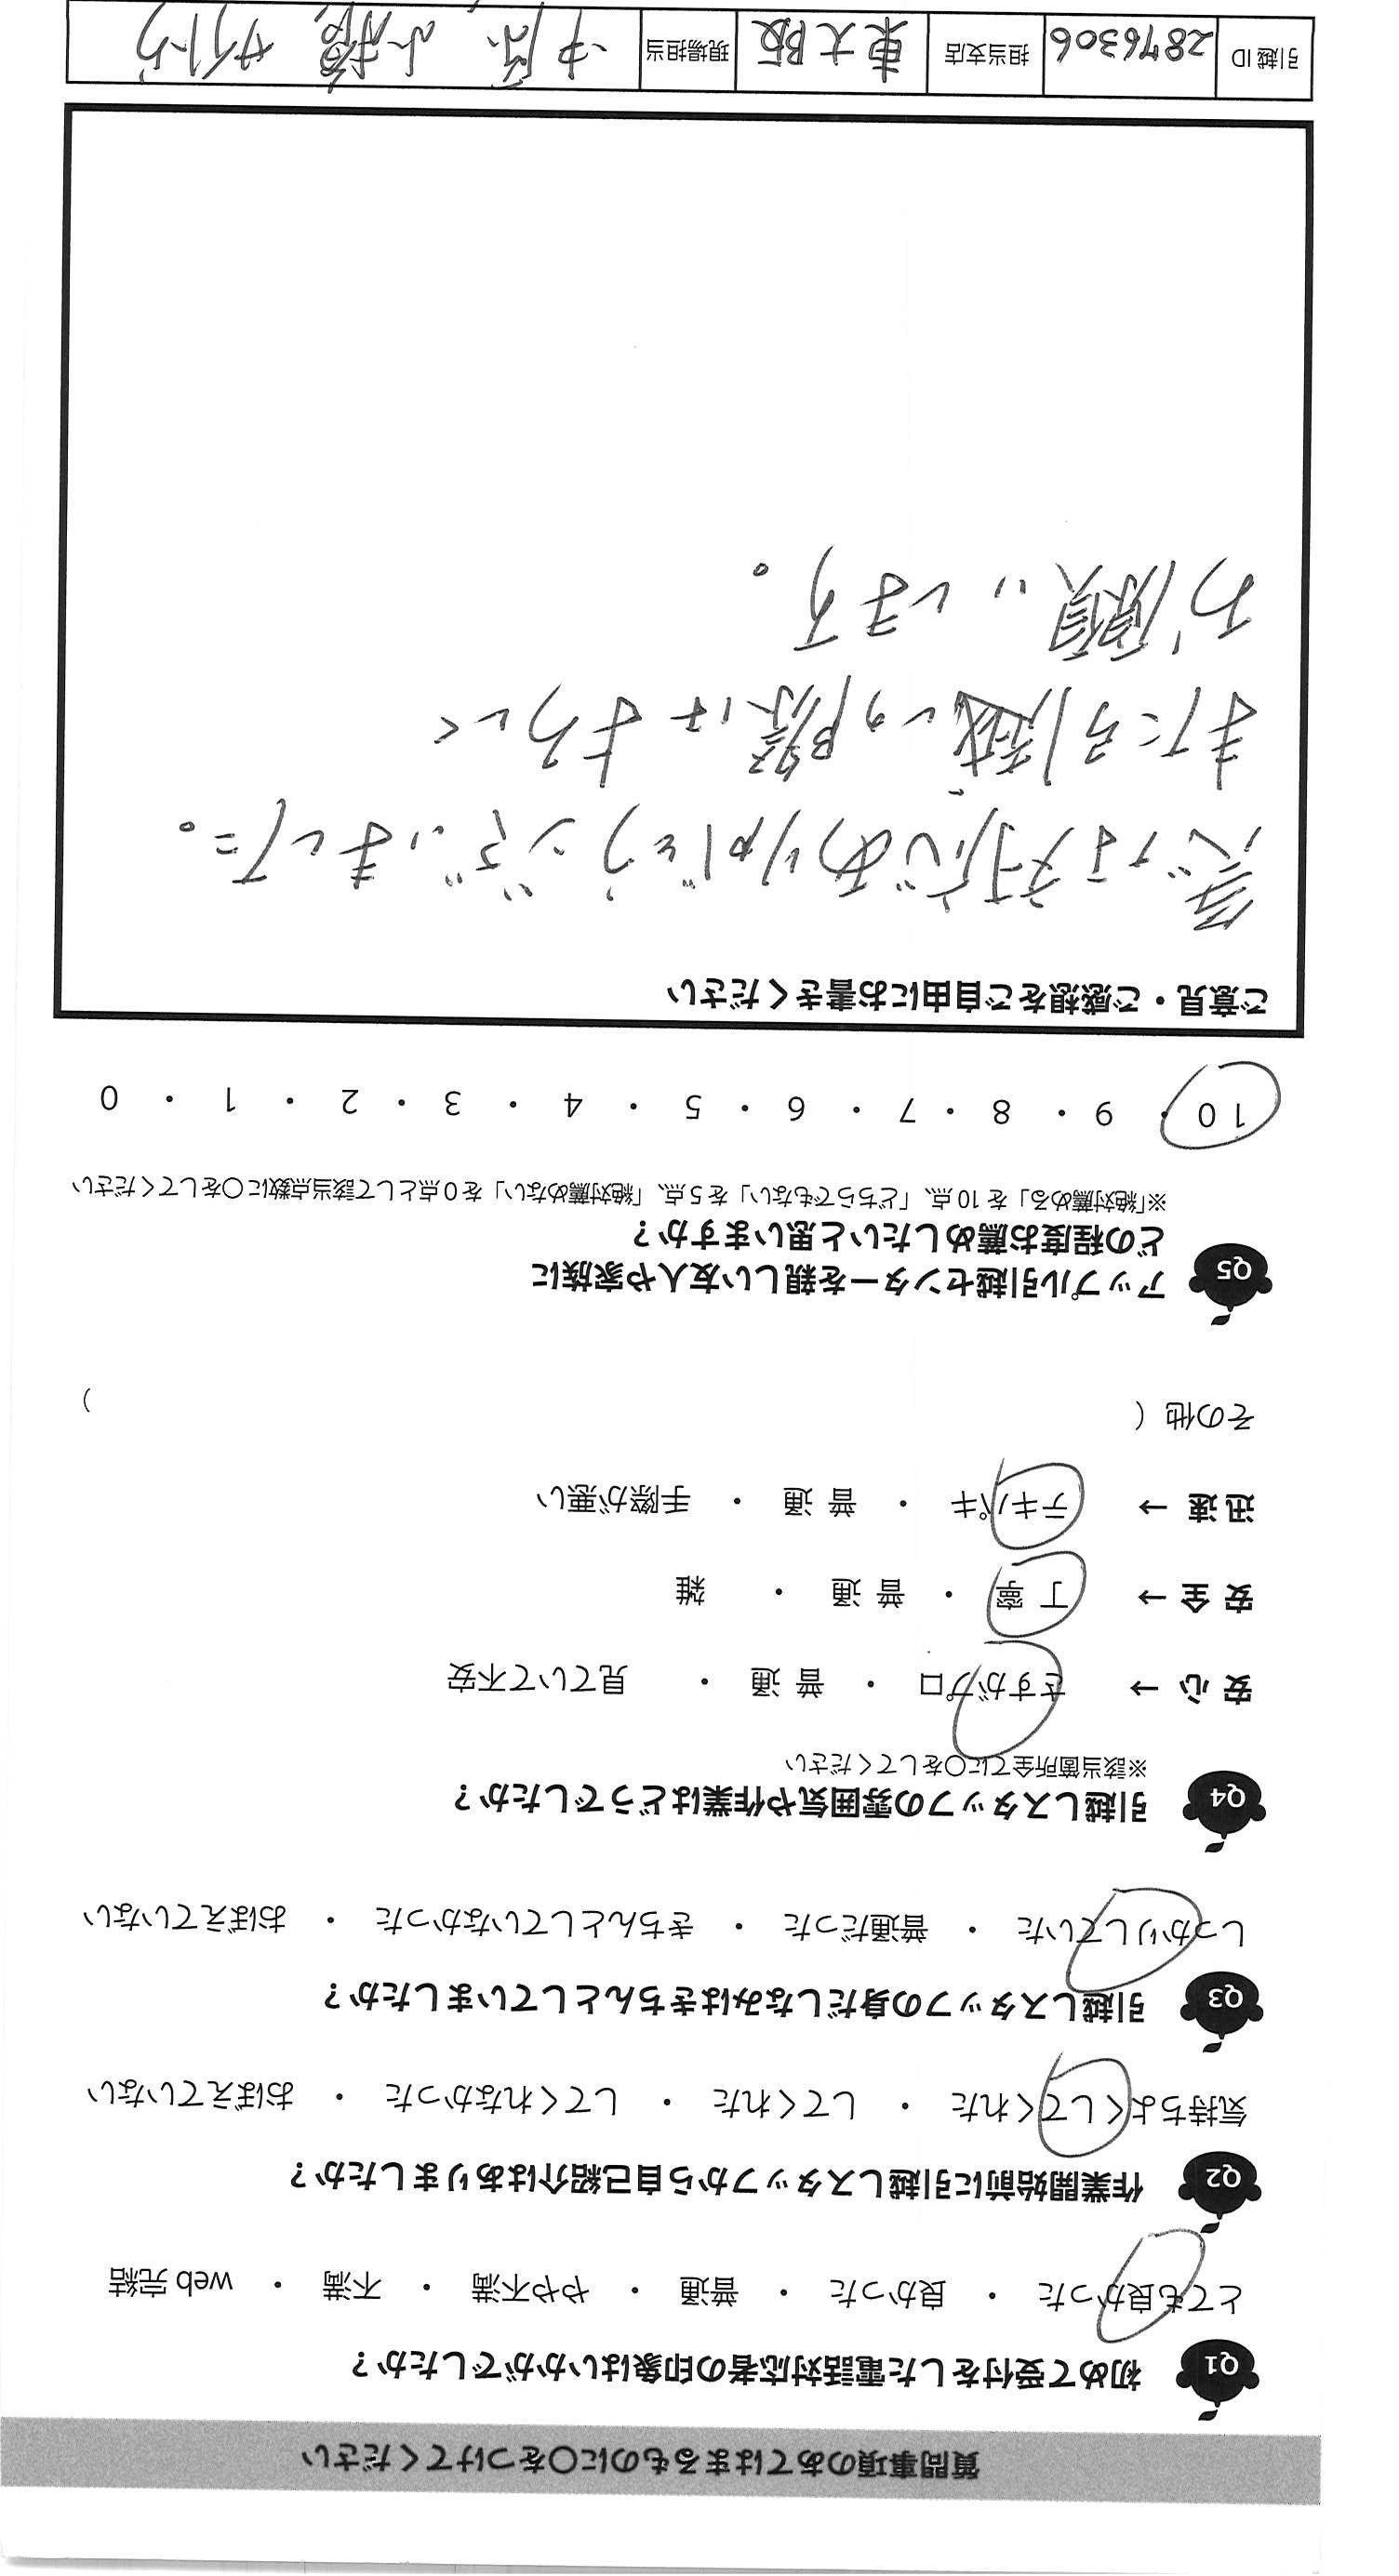 質問事項のあてはまるものに〇をつけてください
Q1 初めて受付をした電話対応者の印象はいかがでしたか？
とても良かった ・ 良かった ・ 普通 ・ やや不満 ・ 不満 ・ web 完結
Q2 作業開始前に引越しスタッフから自己紹介はありましたか？
気持ちよくしてくれた ・ してくれた ・ してくれなかった ・ おぼえていない
Q3 引越しスタッフの身だしなみはきちんとしていましたか？
しっかりしていた ・ 普通だった ・ きちんとしていなかった ・ おぼえていない
Q4 引越しスタッフの雰囲気や作業はどうでしたか？
※該当箇所全てに〇をしてください
安 心 → さすがプロ ・ 普 通 ・ 見ていて不安
安 全 → 丁 寧 ・ 普 通 ・ 雑
迅 速 → テキパキ ・ 普 通 ・ 手際が悪い
その他（ ）
Q5 アップル引越センターを親しい友人や家族に
どの程度お薦めしたいと思いますか？
※「絶対薦める」を 10 点、「どちらでもない」を 5 点、「絶対薦めない」を 0 点として該当点数に〇をしてください
10 ・ 9 ・ 8 ・ 7 ・ 6 ・ 5 ・ 4 ・ 3 ・ 2 ・ 1 ・ 0
ご意見・ご感想をご自由にお書きください
急な対応ありがとうございました。
また引越しの際はよろしく
お願いします。
引越 ID 2876306 担当支店 東大阪 現場担当 サイトウ